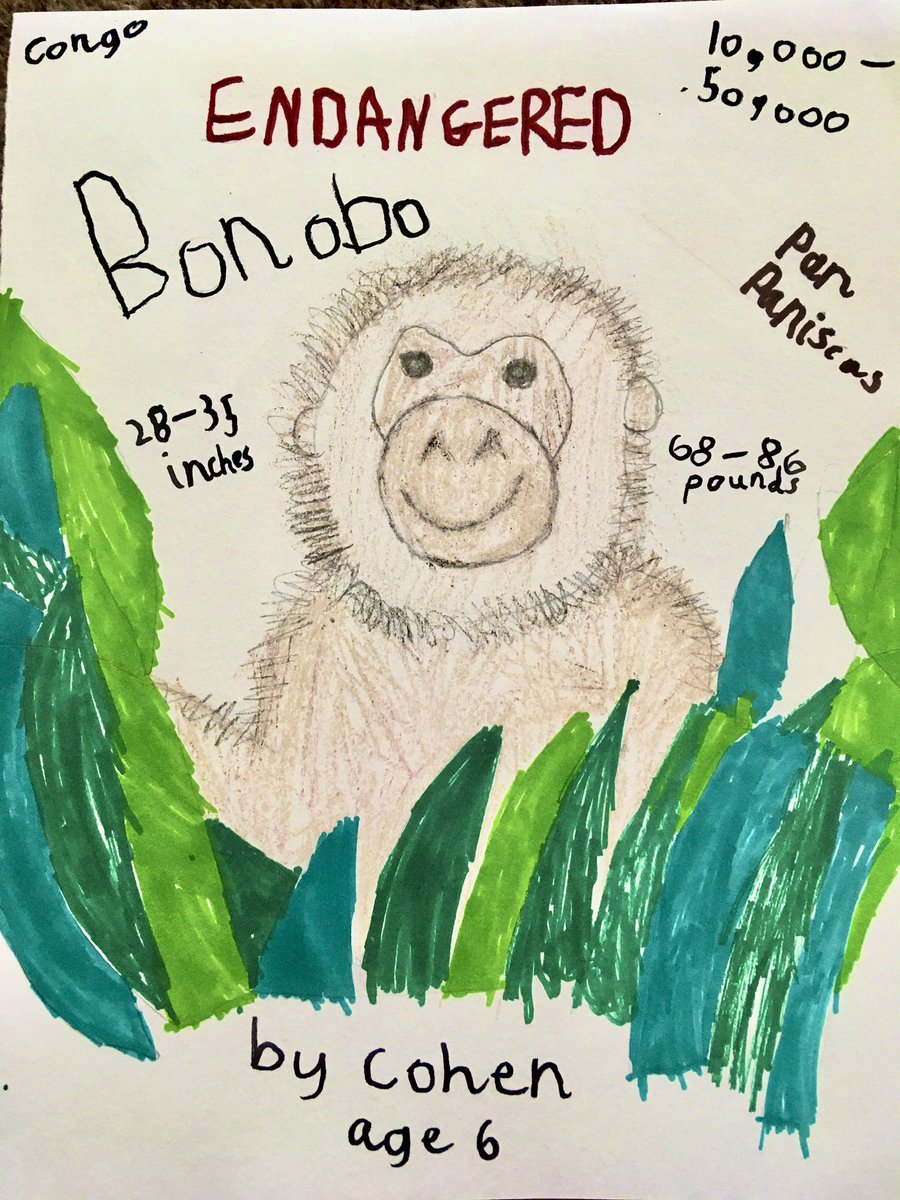 Congo
10,000 –
50,000
ENDANGERED
Bonobo
Pan
Paniscas
28–35
inches
68–86
pounds
by Cohen
age 6